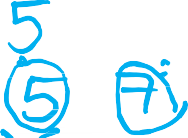 5
5 7